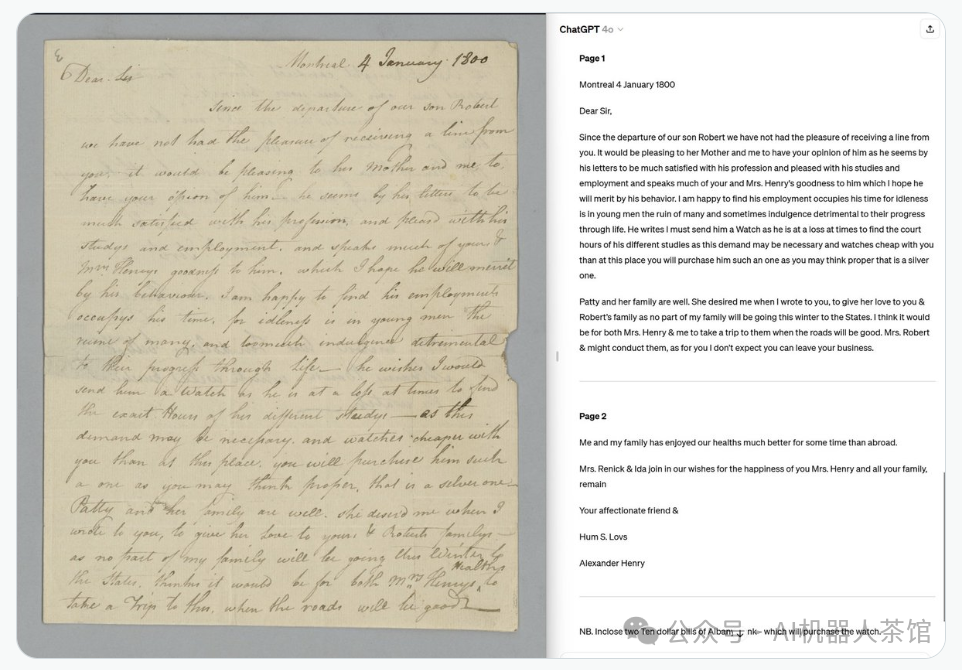 Montreal 4 January 1800
Dear Sir
Since the departure of our son Robert
we have not had the pleasure of receiving a line from
you, it would be pleasing to his Mother and me, to
have your opinion of him — he seems by his letters to be
much satisfied with his profession, and pleased with his
studys and employment, and speaks much of yours &
Mrs Henrys goodness to him, which I hope he will merrit
by his behaviour. I am happy to find his employments
occupys his time, for idleness is in young men the
ruine of many, and toomuch indulgence detrimental
to their progress through life — he wishes I would
send him a Watch as he is at a loss at times to find
the exact Hours of his different studys — as this
demand may be necessary, and watches cheaper with
you than at this place, you will purchase him such
a one as you may think proper, that is a silver one —
Patty and her family are well. she desird me when I
wrote to you, to give her love to yours & Roberts familys —
as no part of my family will be going this Winter to
the States, thinks it would be for both Mrs Henrys healths to
take a Trip to this, when the roads will be good —
ChatGPT 4o
Page 1
Montreal 4 January 1800
Dear Sir,
Since the departure of our son Robert we have not had the pleasure of receiving a line from
you. It would be pleasing to her Mother and me to have your opinion of him as he seems by
his letters to be much satisfied with his profession and pleased with his studies and
employment and speaks much of you and Mrs. Henry's goodness to him which I hope he
will merit by his behavior. I am happy to find his employment occupies his time for idleness
is in young men the ruin of many and sometimes indulgence detrimental to their progress
through life. He writes I must send him a Watch as he is at a loss at times to find the court
hours of his different studies as this demand may be necessary and watches cheap with you
than at this place you will purchase him such an one as you may think proper that is a silver
one.
Patty and her family are well. She desired me when I wrote to you, to give her love to you &
Robert's family as no part of my family will be going this winter to the States. I think it would
be for both Mrs. Henry & me to take a trip to them when the roads will be good. Mrs. Robert
& might conduct them, as for you I don't expect you can leave your business.
Page 2
Me and my family has enjoyed our healths much better for some time than abroad.
Mrs. Renick & Ida join in our wishes for the happiness of you Mrs. Henry and all your family,
remain
Your affectionate friend &
Hum S. Lovs
Alexander Henry
NB. Inclose two Ten dollar bills of Albam nk– which will purchase the watch.
公众号 · AI机器人茶馆